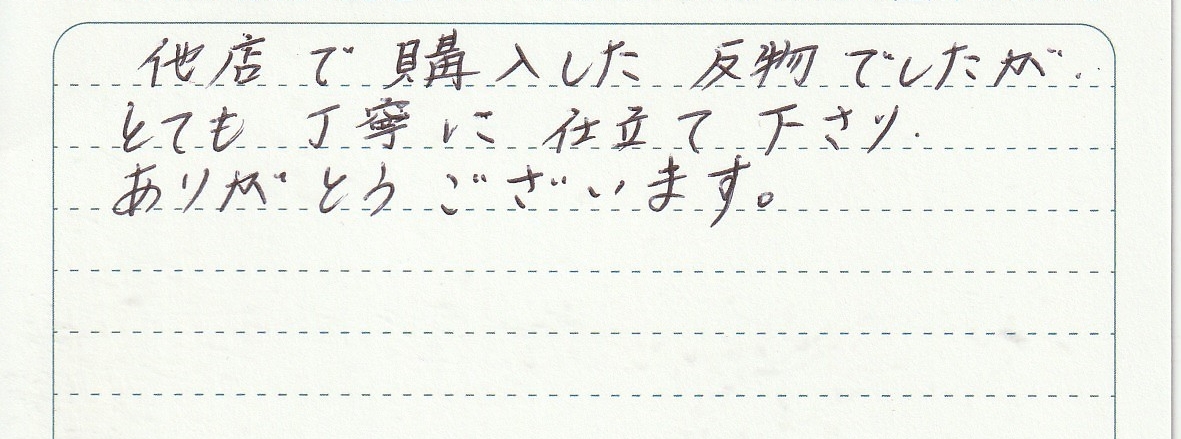 他店で購入した反物でしたが.
とても丁寧に仕立て下さり.
ありがとうございます。